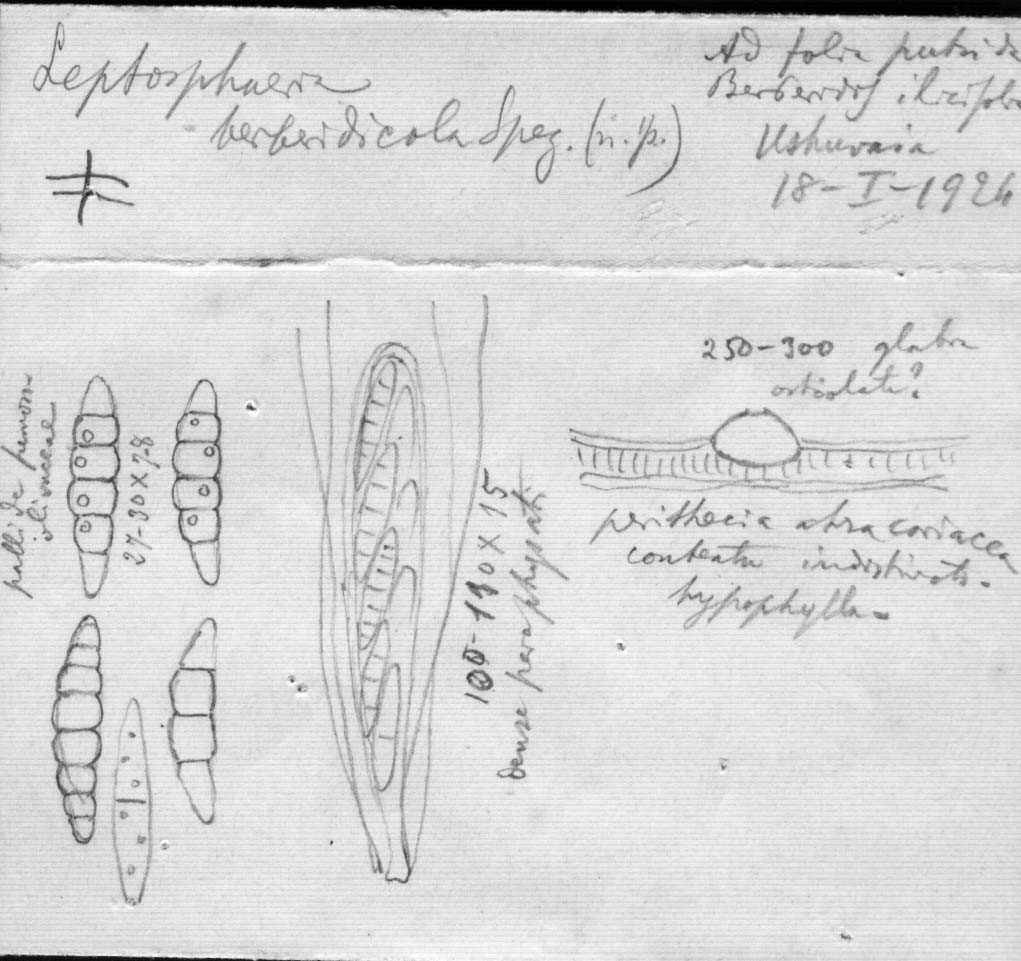 Leptosphaeria
berberidicola Speg. (n. sp.)
Ad folia putrida
Berberidis ilicifolia
Ushuvaia
18-I-1924
250-300 glabra
ostiolata?
perithecia atra coriacea
contextu indistincto-
hypophylla-
pallide
olivaceae
27-30 x 7-8
100-130 x 15
dense paraphysati